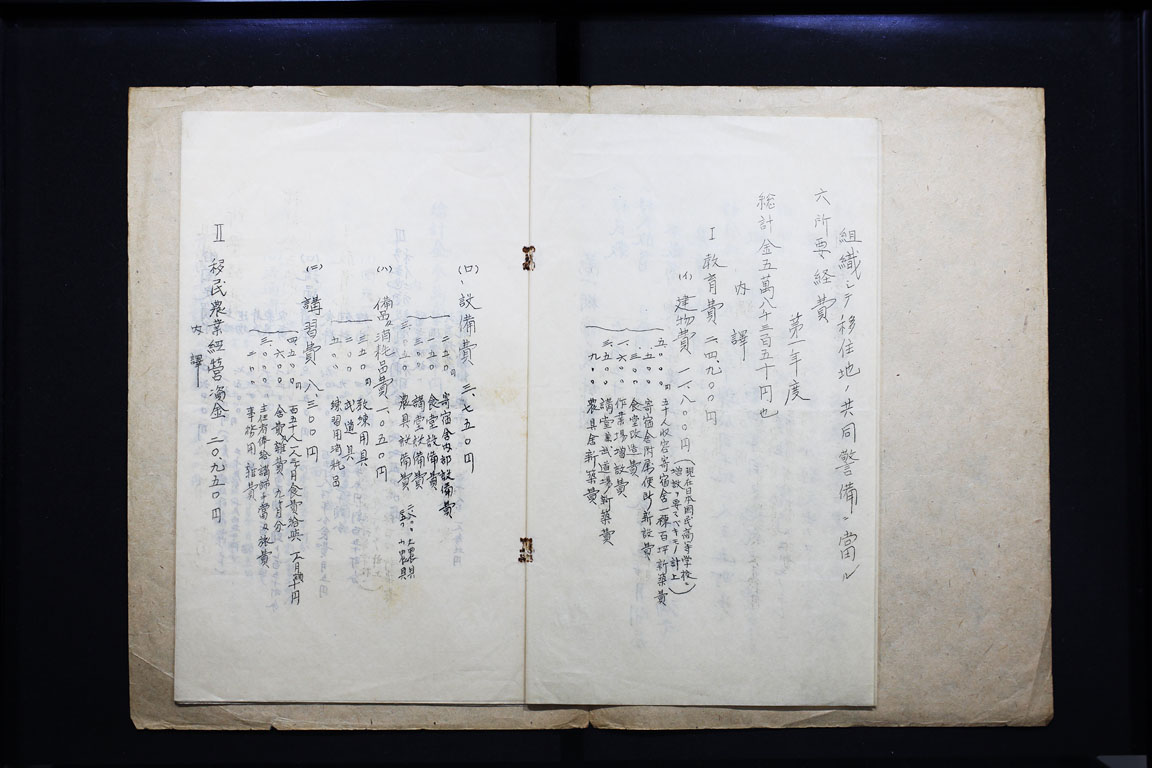 組織シテ移住地ノ共同警備ニ當ル
六所要経費
第一年度
総計金五萬八千三百五十円也
内譯
I 教育費 二四、九〇〇円
(イ) 建物費 一一、八〇〇円
(現在日本國民高等学校ニ
増設ヲ要スベキモノ計上)
五、〇〇〇円 五十人収容寄宿舎一棟百坪新築費
五〇〇 寄宿舎附属便所新設費
三〇〇 食堂改造費
一、六〇〇 作業場増設費
三、五〇〇 講堂兼武道場新築費
九〇〇 農具舎新築費
(ロ)、設備費 三、七五〇円
二五〇円 寄宿舎内部設備費
一五〇 食堂設備費
三〇〇 講堂設備費
三、〇五〇 農具設備費 大農具 小農具
(ハ) 備品消耗品費 一、〇五〇円
三五〇円 教練用具
二〇〇 武道具
五〇〇 練習用消耗品
(ニ) 講習費 八、三〇〇円
四、五〇〇円 百五十人 食費給與
舎費雑費
三、〇〇〇 主任者俸給講師手當及旅費
二〇〇 事務用雑費
II 移民農業経営資金 二〇、九五〇円
内譯